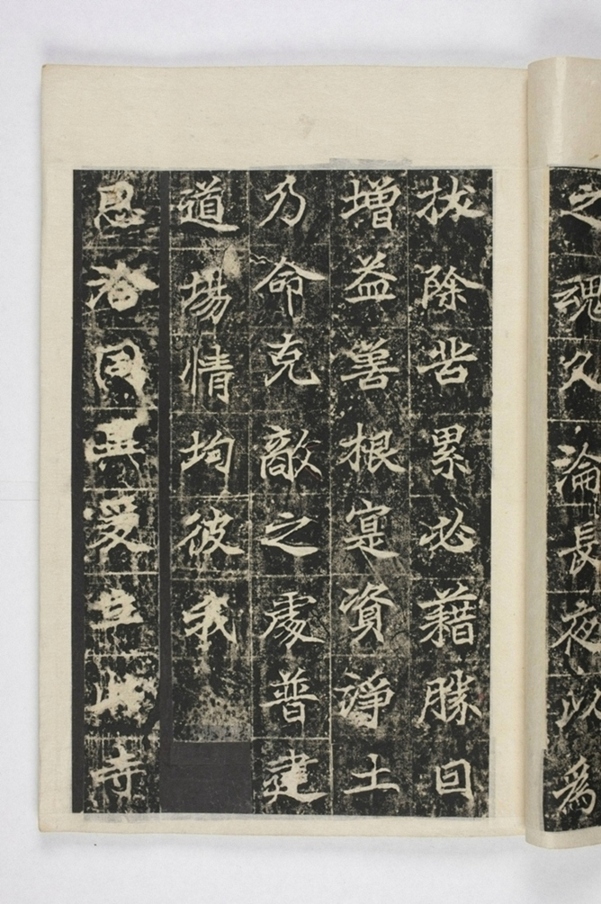 之魂久淪長夜以為
拔除苦累必藉勝因
增益善根寔資淨土
乃命克敵之處普建
道場情均彼我
恩洽同異爰立此寺